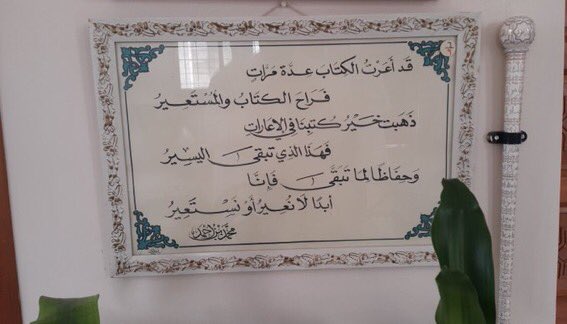 قد أعرت الكتاب عدة مرات
فراح الكتاب والمستعير
ذهبت خير كتبنا في الإعارات
فهذا الذي تبقى اليسير
وحفاظا لما تبقى فإنا
أبدا لا نعير أو نستعير